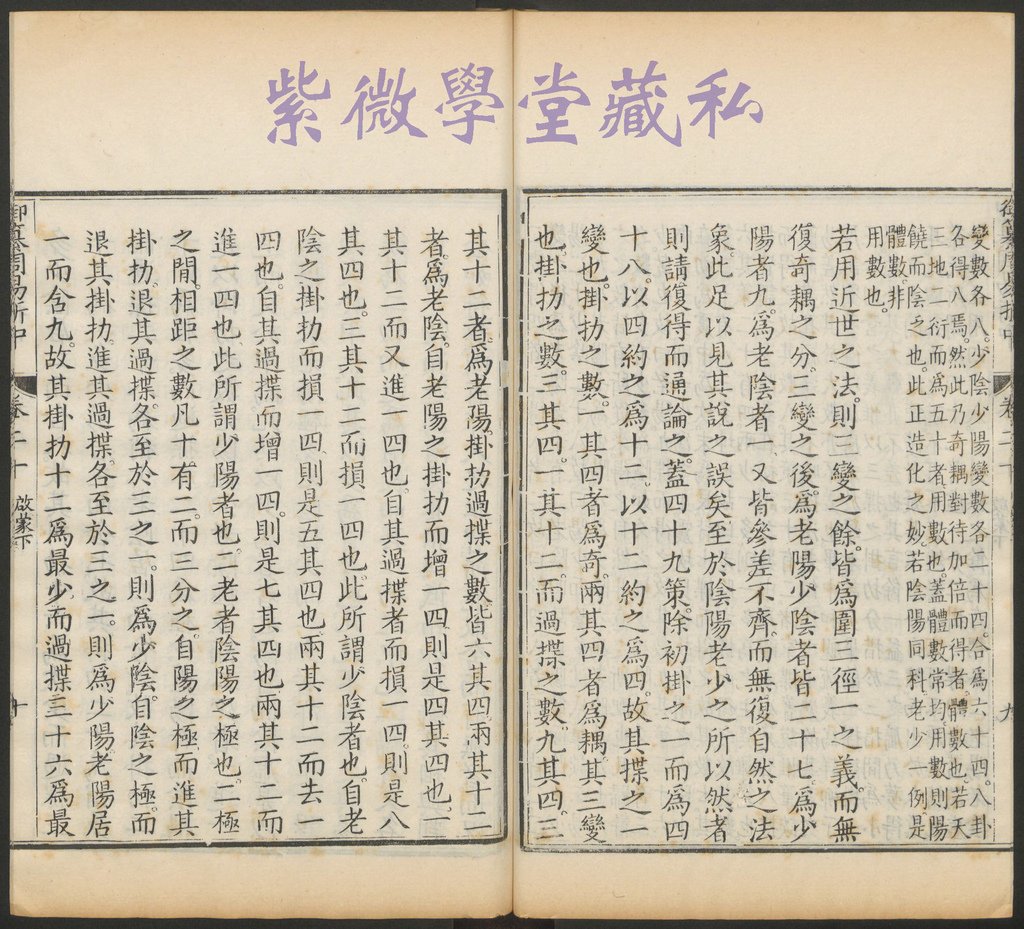 紫微學堂藏私
變數各八。少陰少陽變數各二十四。合爲六十四。八卦
各得八焉。然此乃奇耦對待加倍而得者。體數也。若天
三地二衍而爲五十者。用數也。蓋體數常均。用數則陽
饒而陰乏也。此正造化之妙。若陰陽同科。老少一例。是
體數。非
用數也。
若用近世之法。則三變之餘。皆爲圍三徑一之義。而無
復奇耦之分。三變之後。爲老陽少陰者。皆二十七。爲少
陽者九。爲老陰者一。又皆參差不齊。而無復自然之法
象。此足以見其說之誤矣。至於陰陽老少之所以然者。
則請復得而通論之。蓋四十九策。除初掛之一而爲四
十八。以四約之爲十二。以十二約之爲四。故其揲之一
變也。掛扐之數。一其四者爲奇。兩其四者爲耦。其三變
也。掛扐之數。三其四。一其十二。而過揲之數。九其四。三
其十二者。爲老陽。掛扐過揲之數。皆六其四。兩其十二
者。爲老陰。自老陽之掛扐而增一四。則是四其四也。一
其十二而又進一四也。自其過揲者而損一四。則是八
其四也。三其十二而損一四也。此所謂少陰者也。自老
陰之掛扐而損一四。則是五其四也。兩其十二而去一
四也。自其過揲而增一四。則是七其四也。兩其十二而
進一四也。此所謂少陽者也。二老者陰陽之極也。二極
之閒。相距之數凡十有二。而三分之。自陽之極而進其
掛扐。退其過揲。各至於三之一。則爲少陰。自陰之極而
退其掛扐。進其過揲。各至於三之一。則爲少陽。老陽居
一而含九。故其掛扐十二爲最少。而過揲三十六爲最
卷二十 啟蒙下
十
九